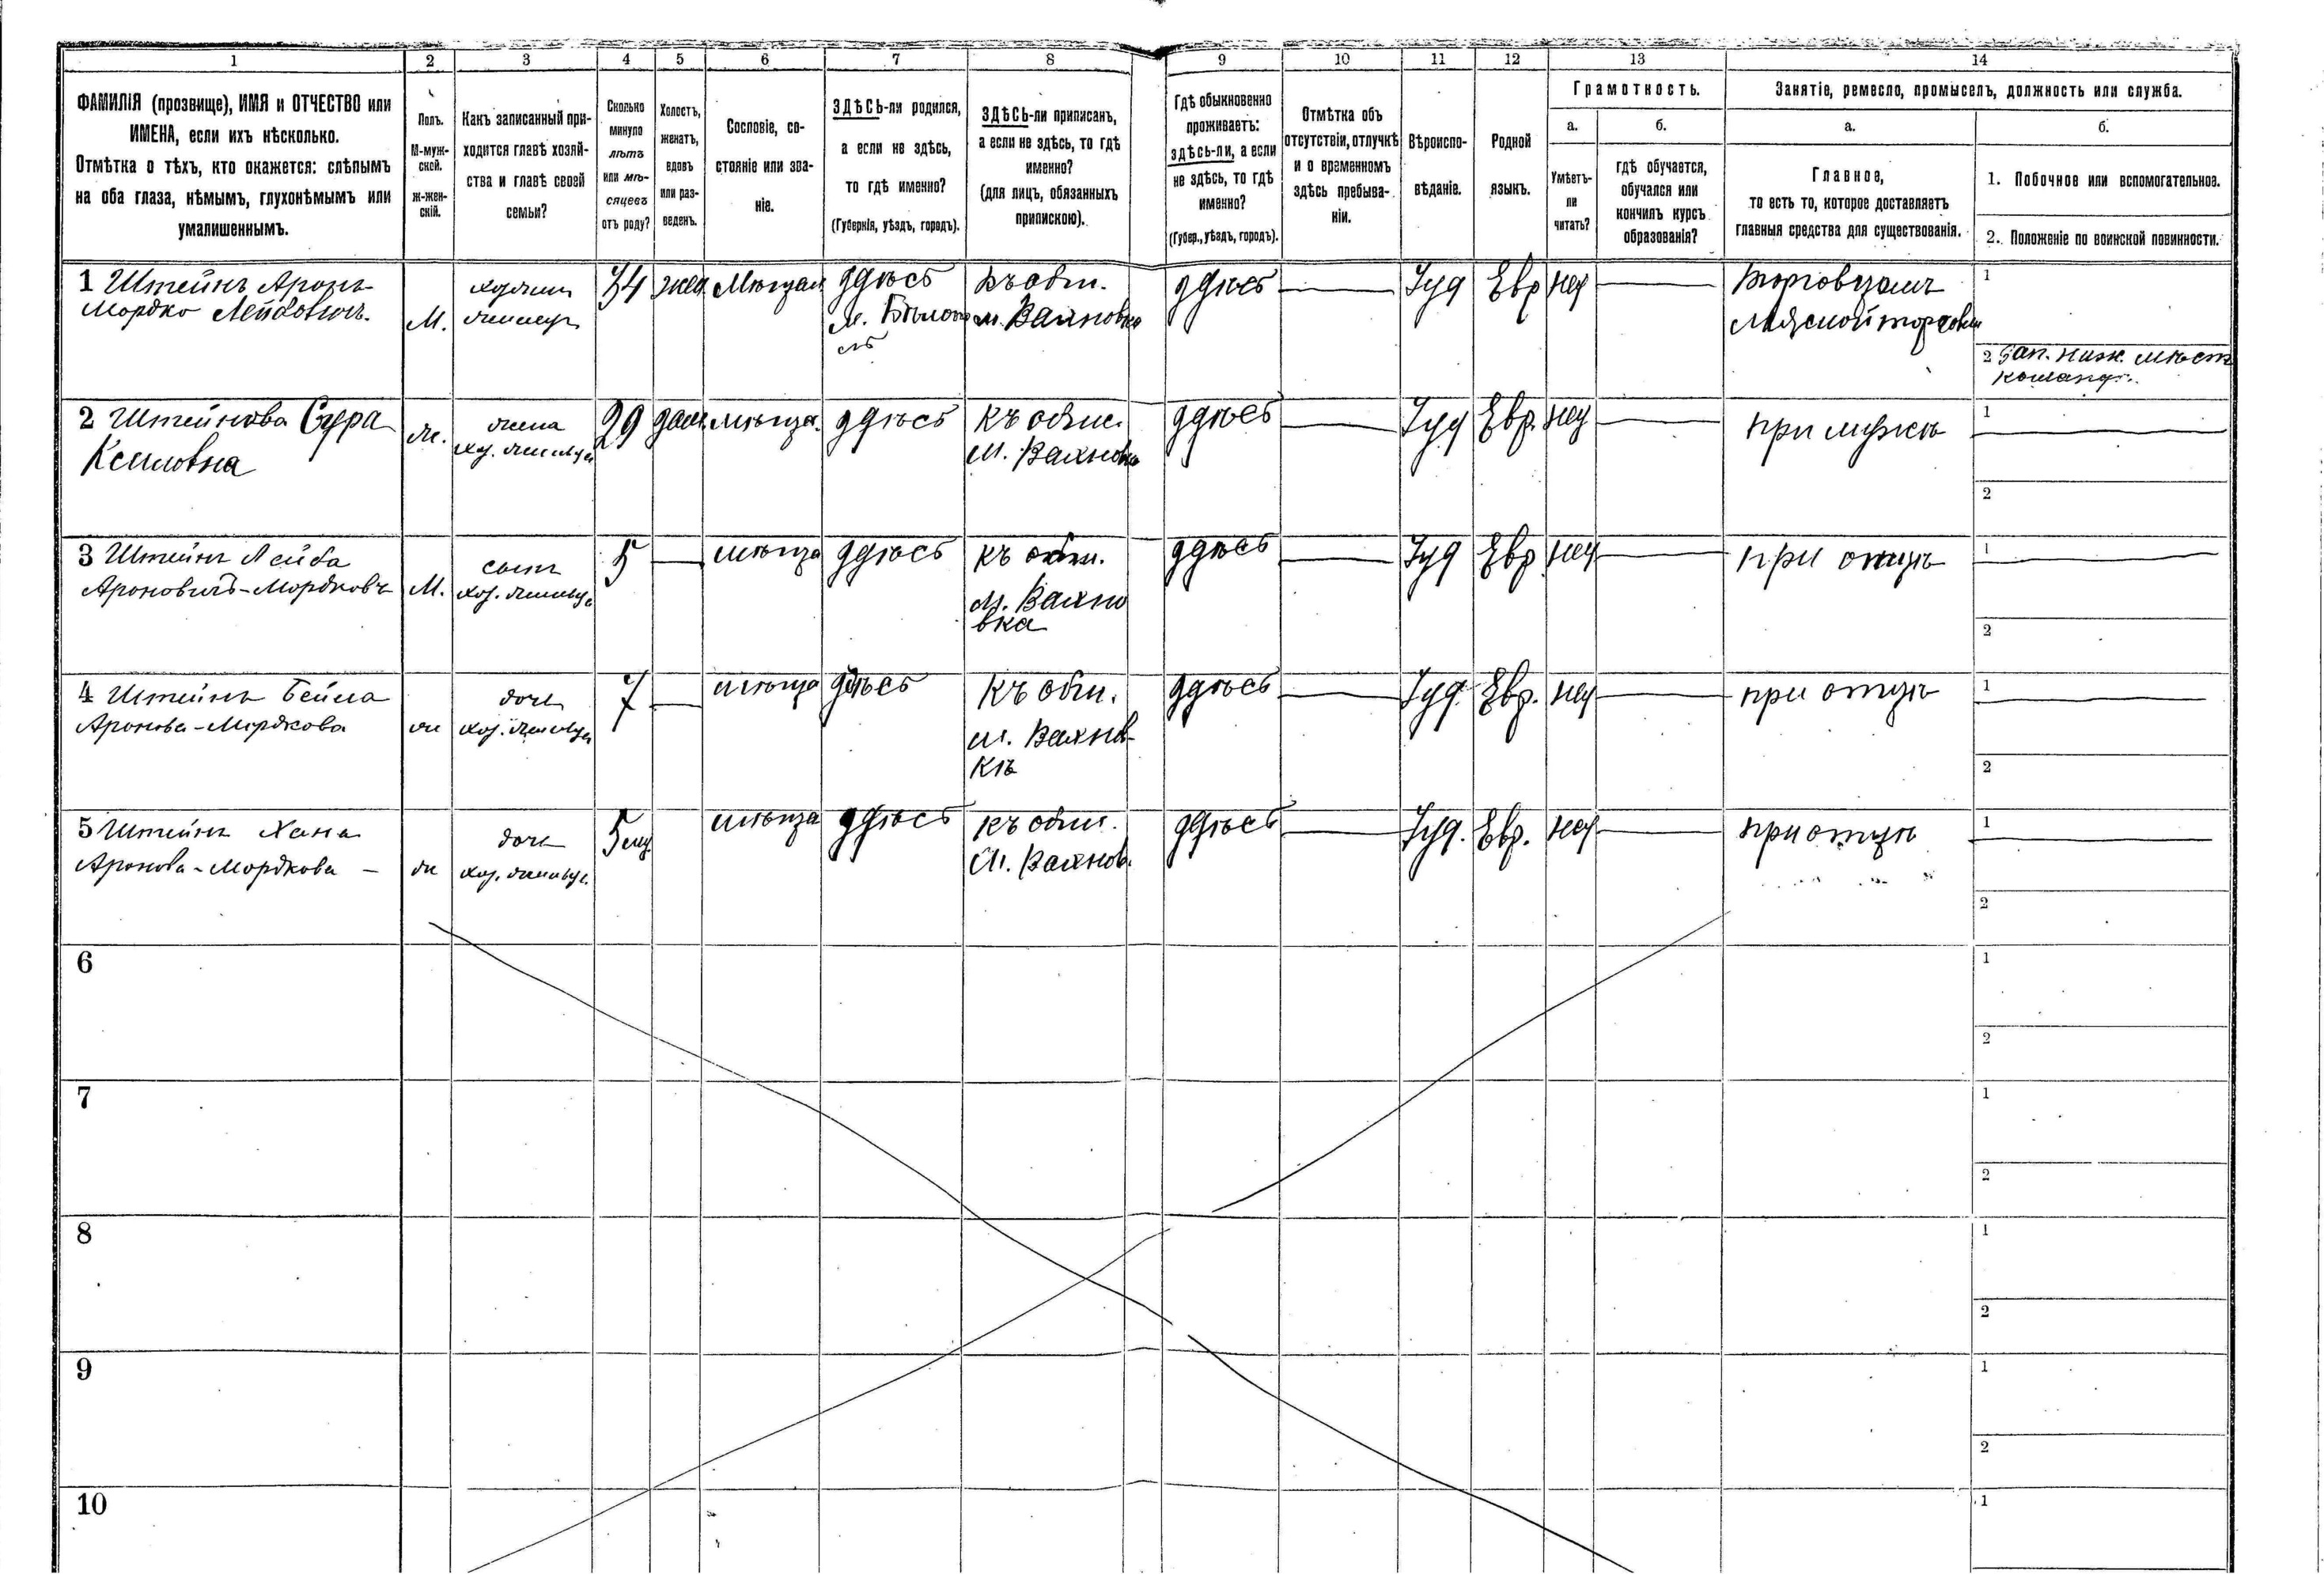 1 2 3 4 5 6 7 8 9 10 11 12 13 14
ФАМИЛІЯ (прозвище), ИМЯ и ОТЧЕСТВО или
ИМЕНА, если ихъ нѣсколько.
Отмѣтка о тѣхъ, кто окажется: слѣпымъ
на оба глаза, нѣмымъ, глухонѣмымъ или
умалишеннымъ.
Полъ.
М-муж-
ской.
ж-жен-
скій.
Какъ записанный при-
ходится главѣ хозяй-
ства и главѣ своей
семьи?
Сколько
минуло
лѣтъ
или мѣ-
сяцевъ
отъ роду?
Холостъ,
женатъ,
вдовъ
или раз-
веденъ.
Сословіе, со-
стояніе или зва-
ніе.
ЗДѢСЬ-ли родился,
а если не здѣсь,
то гдѣ именно?
(Губернія, уѣздъ, городъ).
ЗДѢСЬ-ли приписан,
а если не здѣсь, то гдѣ
именно?
(для лицъ, обязанныхъ
припискою).
Гдѣ обыкновенно
проживаетъ:
здѣсь-ли, а если
не здѣсь, то гдѣ
именно?
(Губер., уѣздъ, городъ).
Отмѣтка объ
отсутствіи, отлучкѣ
и о временномъ
здѣсь пребыва-
ніи.
Вѣроиспо-
вѣданіе.
Родной
языкъ.
Грамотность.
а.
Умѣетъ-
ли
читать?
б.
гдѣ обучается,
обучался или
кончилъ курсъ
образованія?
Занятіе, ремесло, промыселъ, должность или служба.
а.
Главное,
то есть то, которое доставляетъ
главныя средства для существованія.
б.
1. Побочное или вспомогательное.
2. Положеніе по воинской повинности.
1 Штейнъ Аронъ
Мордко Лейбовичъ.
М.
хозяинъ
34
жен.
Мѣщан
здѣсь
къ общ.
м. Вахновка
здѣсь
Іуд
Евр
нѣ
Торговецъ
мясной торговли
1
2 Зап. ниж. мѣст
команд.
2 Штейнова Сура
ж.
жена
29
зам.
мѣща.
здѣсь
къ общ.
м. Вахновка
здѣсь
Іуд
Евр.
нѣ
при мужѣ
1
2
3 Штейнъ Лейба
Ароновичъ-Мордковъ
М.
сынъ
5
мѣща
здѣсь
къ общ.
м. Вахно
вка
здѣсь
Іуд
Евр
нѣ
при отцѣ
1
2
4 Штейнъ Бейла
Аронова-Мордкова
ж
дочь
7
мѣща
здѣсь
къ общ.
м. Вахнов-
кѣ
здѣсь
Іуд.
Евр.
нѣ
при отцѣ
1
2
5 Штейнъ Хана
Аронова-Мордкова
ж
дочь
5 мѣ
мѣща
здѣсь
къ общ.
м. Вахнов.
здѣсь
Іуд.
Евр.
нѣ
при отцѣ
1
2
6
1
2
7
1
2
8
1
2
9
1
2
10
1